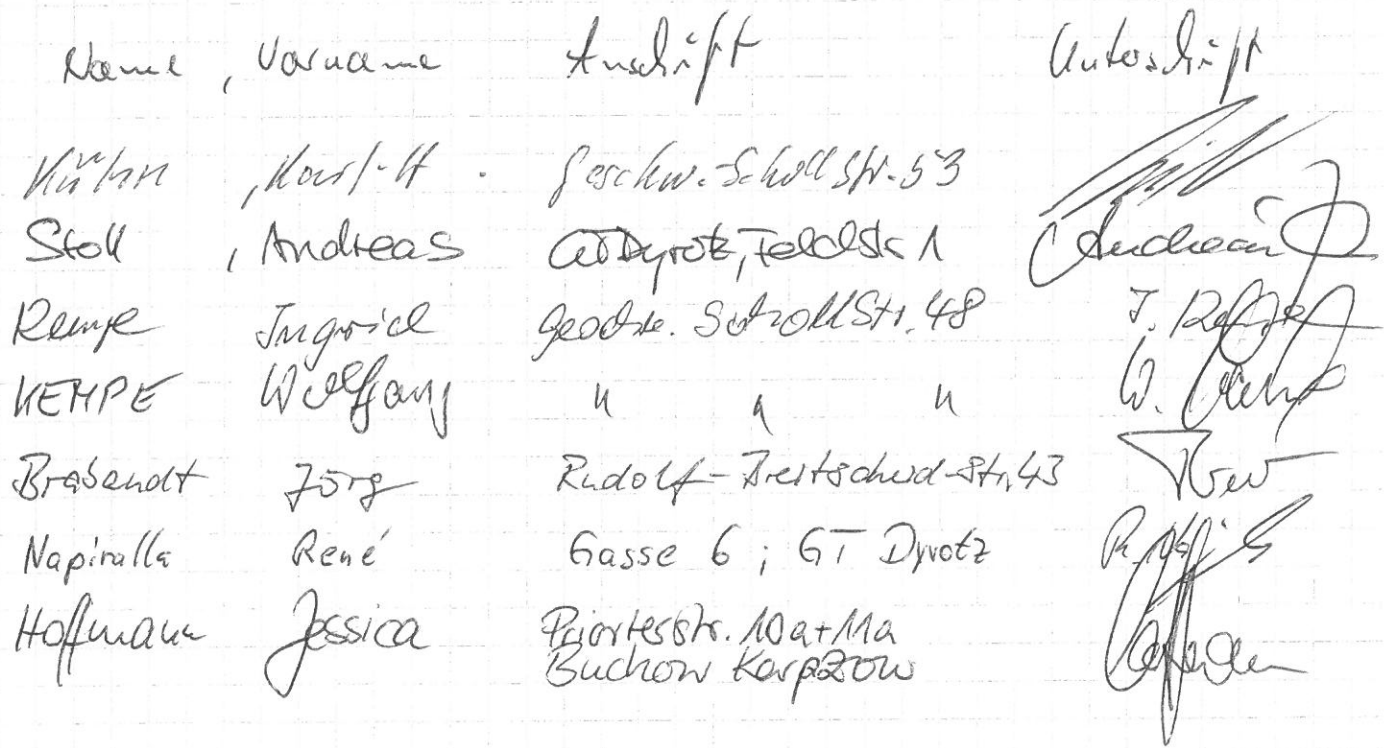 Name , Vorname Anschrift Unterschrift
Kühn , Geschw.-Scholl Str. 53
Stoll , Andreas GT Dyrotz, Feldstr. 1 Andreas
Ingrid Geschw. Scholl Str. 48 I.
KEMPE Wolfgang " " " W.
Brabandt Jörg Rudolf-Breitscheid-Str. 43
Napiralla René Gasse 6 ; GT Dyrotz
Hoffmann Jessica Priorterstr. 10a+11a
Buchow Karpzow